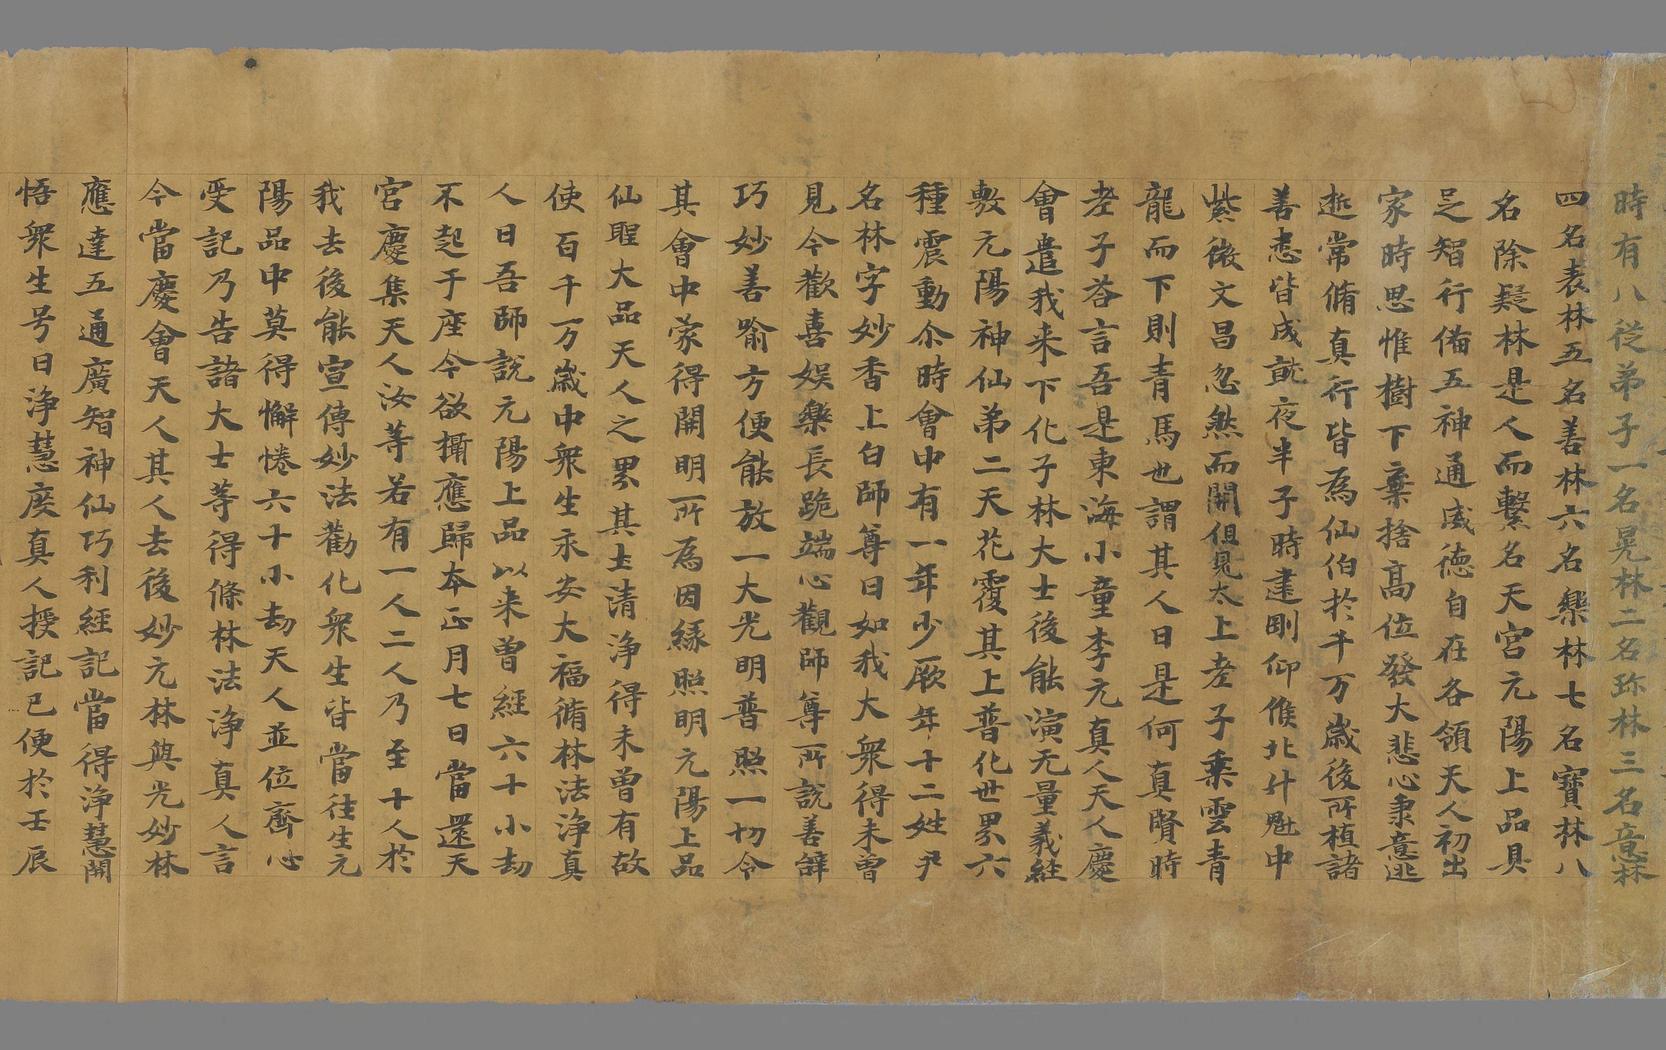 時有八從弟子一名晃林二名珎林三名意林
四名表林五名善林六名樂林七名寶林八
名除疑林是人而繫名天宮元陽上品具
足智行俻五神通威德自在各領天人初出
家時思惟樹下棄捨髙位發大悲心隶意逃
逝常脩真行皆為仙伯於千万歲後所植諸
善悉皆成就夜半子時建剛仰候北斗魁中
紫微文昌忽然而開但見太上老子乗雲青
龍而下則青馬也謂其人曰是何真賢時
老子荅言吾是東海小童李元真人天人慶
會遣我来下化子林大士後能演无量義経
敷元陽神仙弟二天花覆其上普化世界六
種震動尒時會中有一年少厥年十二姓尹
名林字妙香上白師尊曰如我大衆得未曾
見今歡喜娱樂長跪端心觀師尊所說善辝
巧妙善喻方便能放一大光明普照一切令
其會中蒙得開明所為因縁照明元陽上品
仙聖大品天人之界其主清浄得未曾有故
使百千万歲中衆生永安大福脩林法浄真
人曰吾師說元陽上品以来曾經六十小劫
不起于座今欲攝應歸本正月七日當還天
宮慶集天人汝等若有一人二人乃至十人於
我去後能宣傳妙法勸化衆生皆當往生元
陽品中莫得懈惓六十小劫天人並位齊心
受記乃告諸大士等得條林法浄真人言
今當慶會天人其人去後妙元林與光妙林
應達五通廣智神仙巧利經記當得浄慧開
悟衆生号曰浄慧度真人授記已便於壬辰